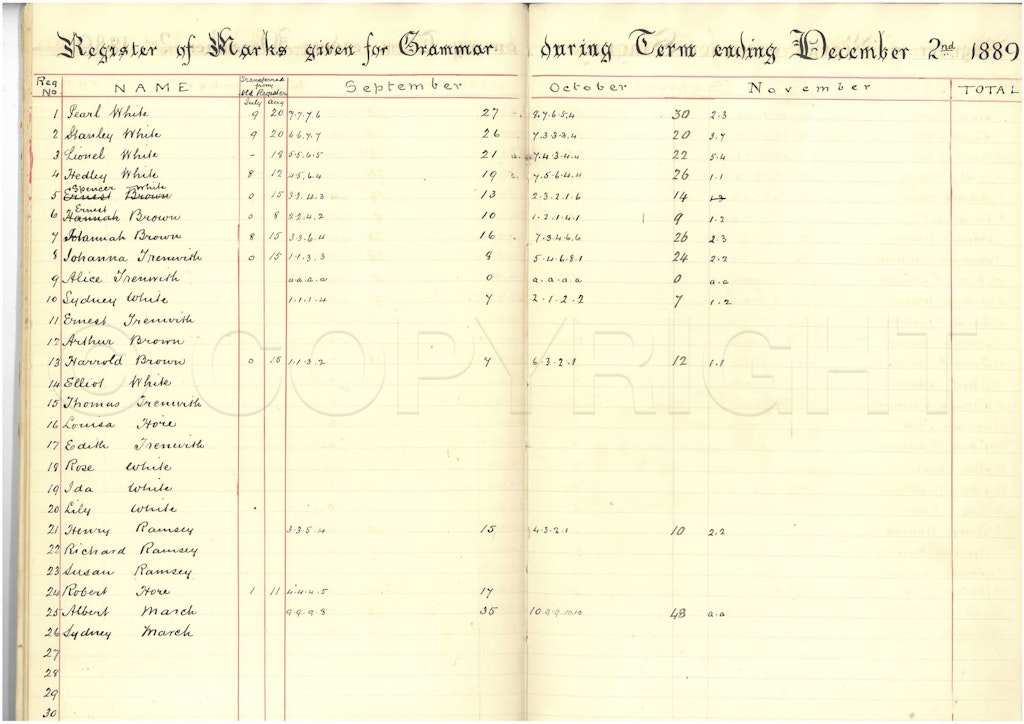 Register of Marks given for Grammar during Term ending December 2nd 1889
Reg No NAME Transferred from Old Register September October November TOTAL
July Aug
1 Pearl White 9 20 7.7.7.6 27 8.7.6.5.4 30 2.3
2 Stanley White 9 20 6.6.7.7 26 7.3.3.3.4 20 3.7
3 Lionel White - 19 5.5.6.5 21 7.4.3.4.4 22 5.4
4 Hedley White 8 12 4.5.6.4 19 7.5.6.4.4 26 1.1
Spencer White
5 Ernest Brown 0 15 3.3.4.3 13 2.3.2.1.6 14
Ernest
6 Hannah Brown 0 8 2.2.4.2 10 1.2.1.4.1 9 1.2
7 Hannah Brown 8 15 3.3.6.4 16 7.3.4.6.6 26 2.3
8 Johanna Trenwith 0 15 1.1.3.3 8 5.4.6.8.1 24 2.2
9 Alice Trenwith a.a.a.a 0 a.a.a.a 0 a.a
10 Sydney White 1.1.1.4 7 2.1.2.2 7 1.2
11 Ernest Trenwith
12 Arthur Brown
13 Harrold Brown 0 15 1.1.3.2 7 6.3.2.1 12 1.1
14 Elliot White
15 Thomas Trenwith
16 Louisa Hore
17 Edith Trenwith
18 Rose White
19 Ida White
20 Lily White
21 Henry Ramsey 3.3.5.4 15 4.3.2.1 10 2.2
22 Richard Ramsey
23 Susan Ramsey
24 Robert Hore 1 11 4.4.4.5 17
25 Albert March 9.9.9.8 35 10.9.9.10.10 48 a.a
26 Sydney March
27
28
29
30
© COPYRIGHT